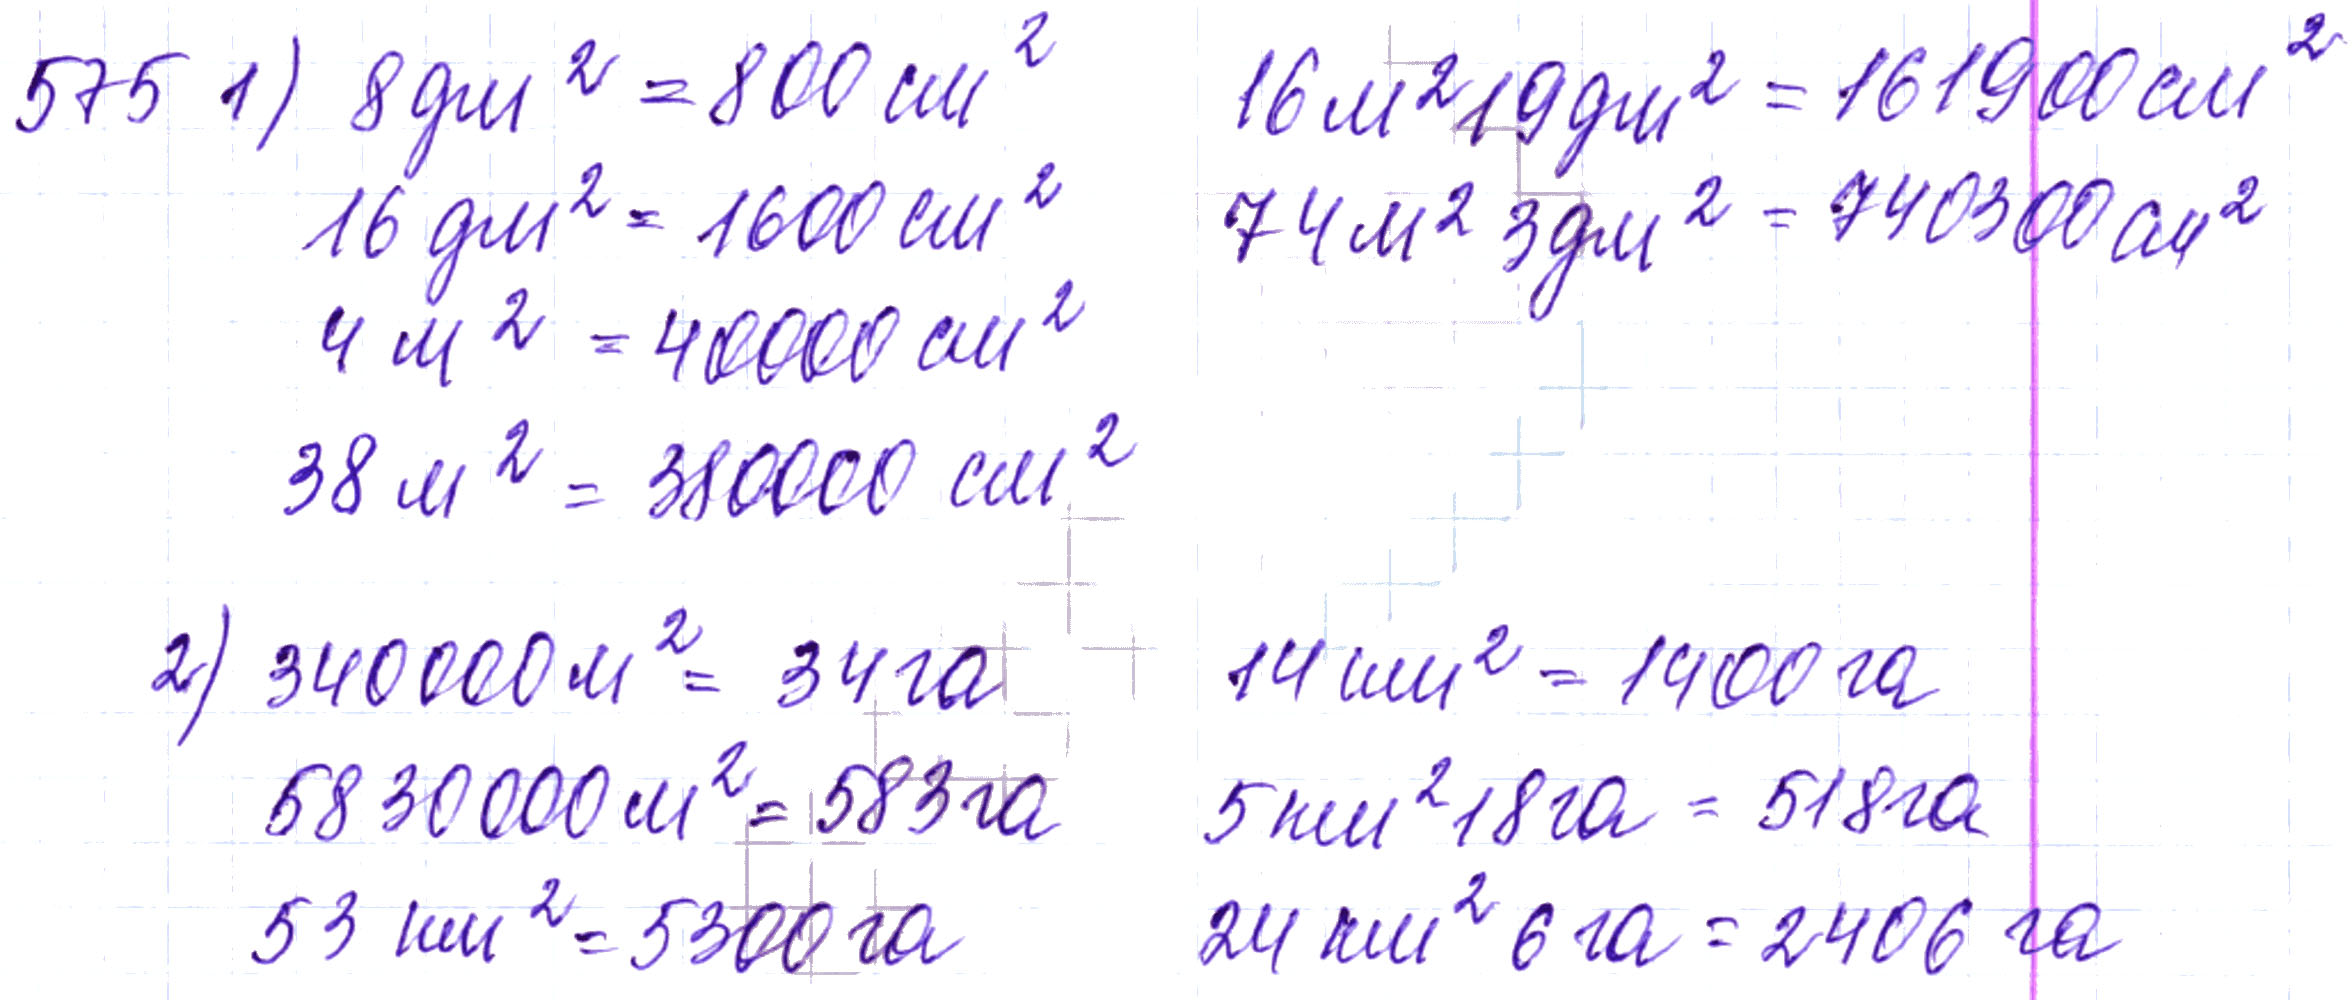 575 1) 8 дм² = 800 см²
16 дм² = 1600 см²
4 м² = 40000 см²
38 м² = 380000 см²
16 м² 19 дм² = 161900 см²
74 м² 3 дм² = 740300 см²
2) 340000 м² = 34 га
5830000 м² = 583 га
53 км² = 5300 га
14 км² = 1400 га
5 км² 18 га = 518 га
24 км² 6 га = 2406 га